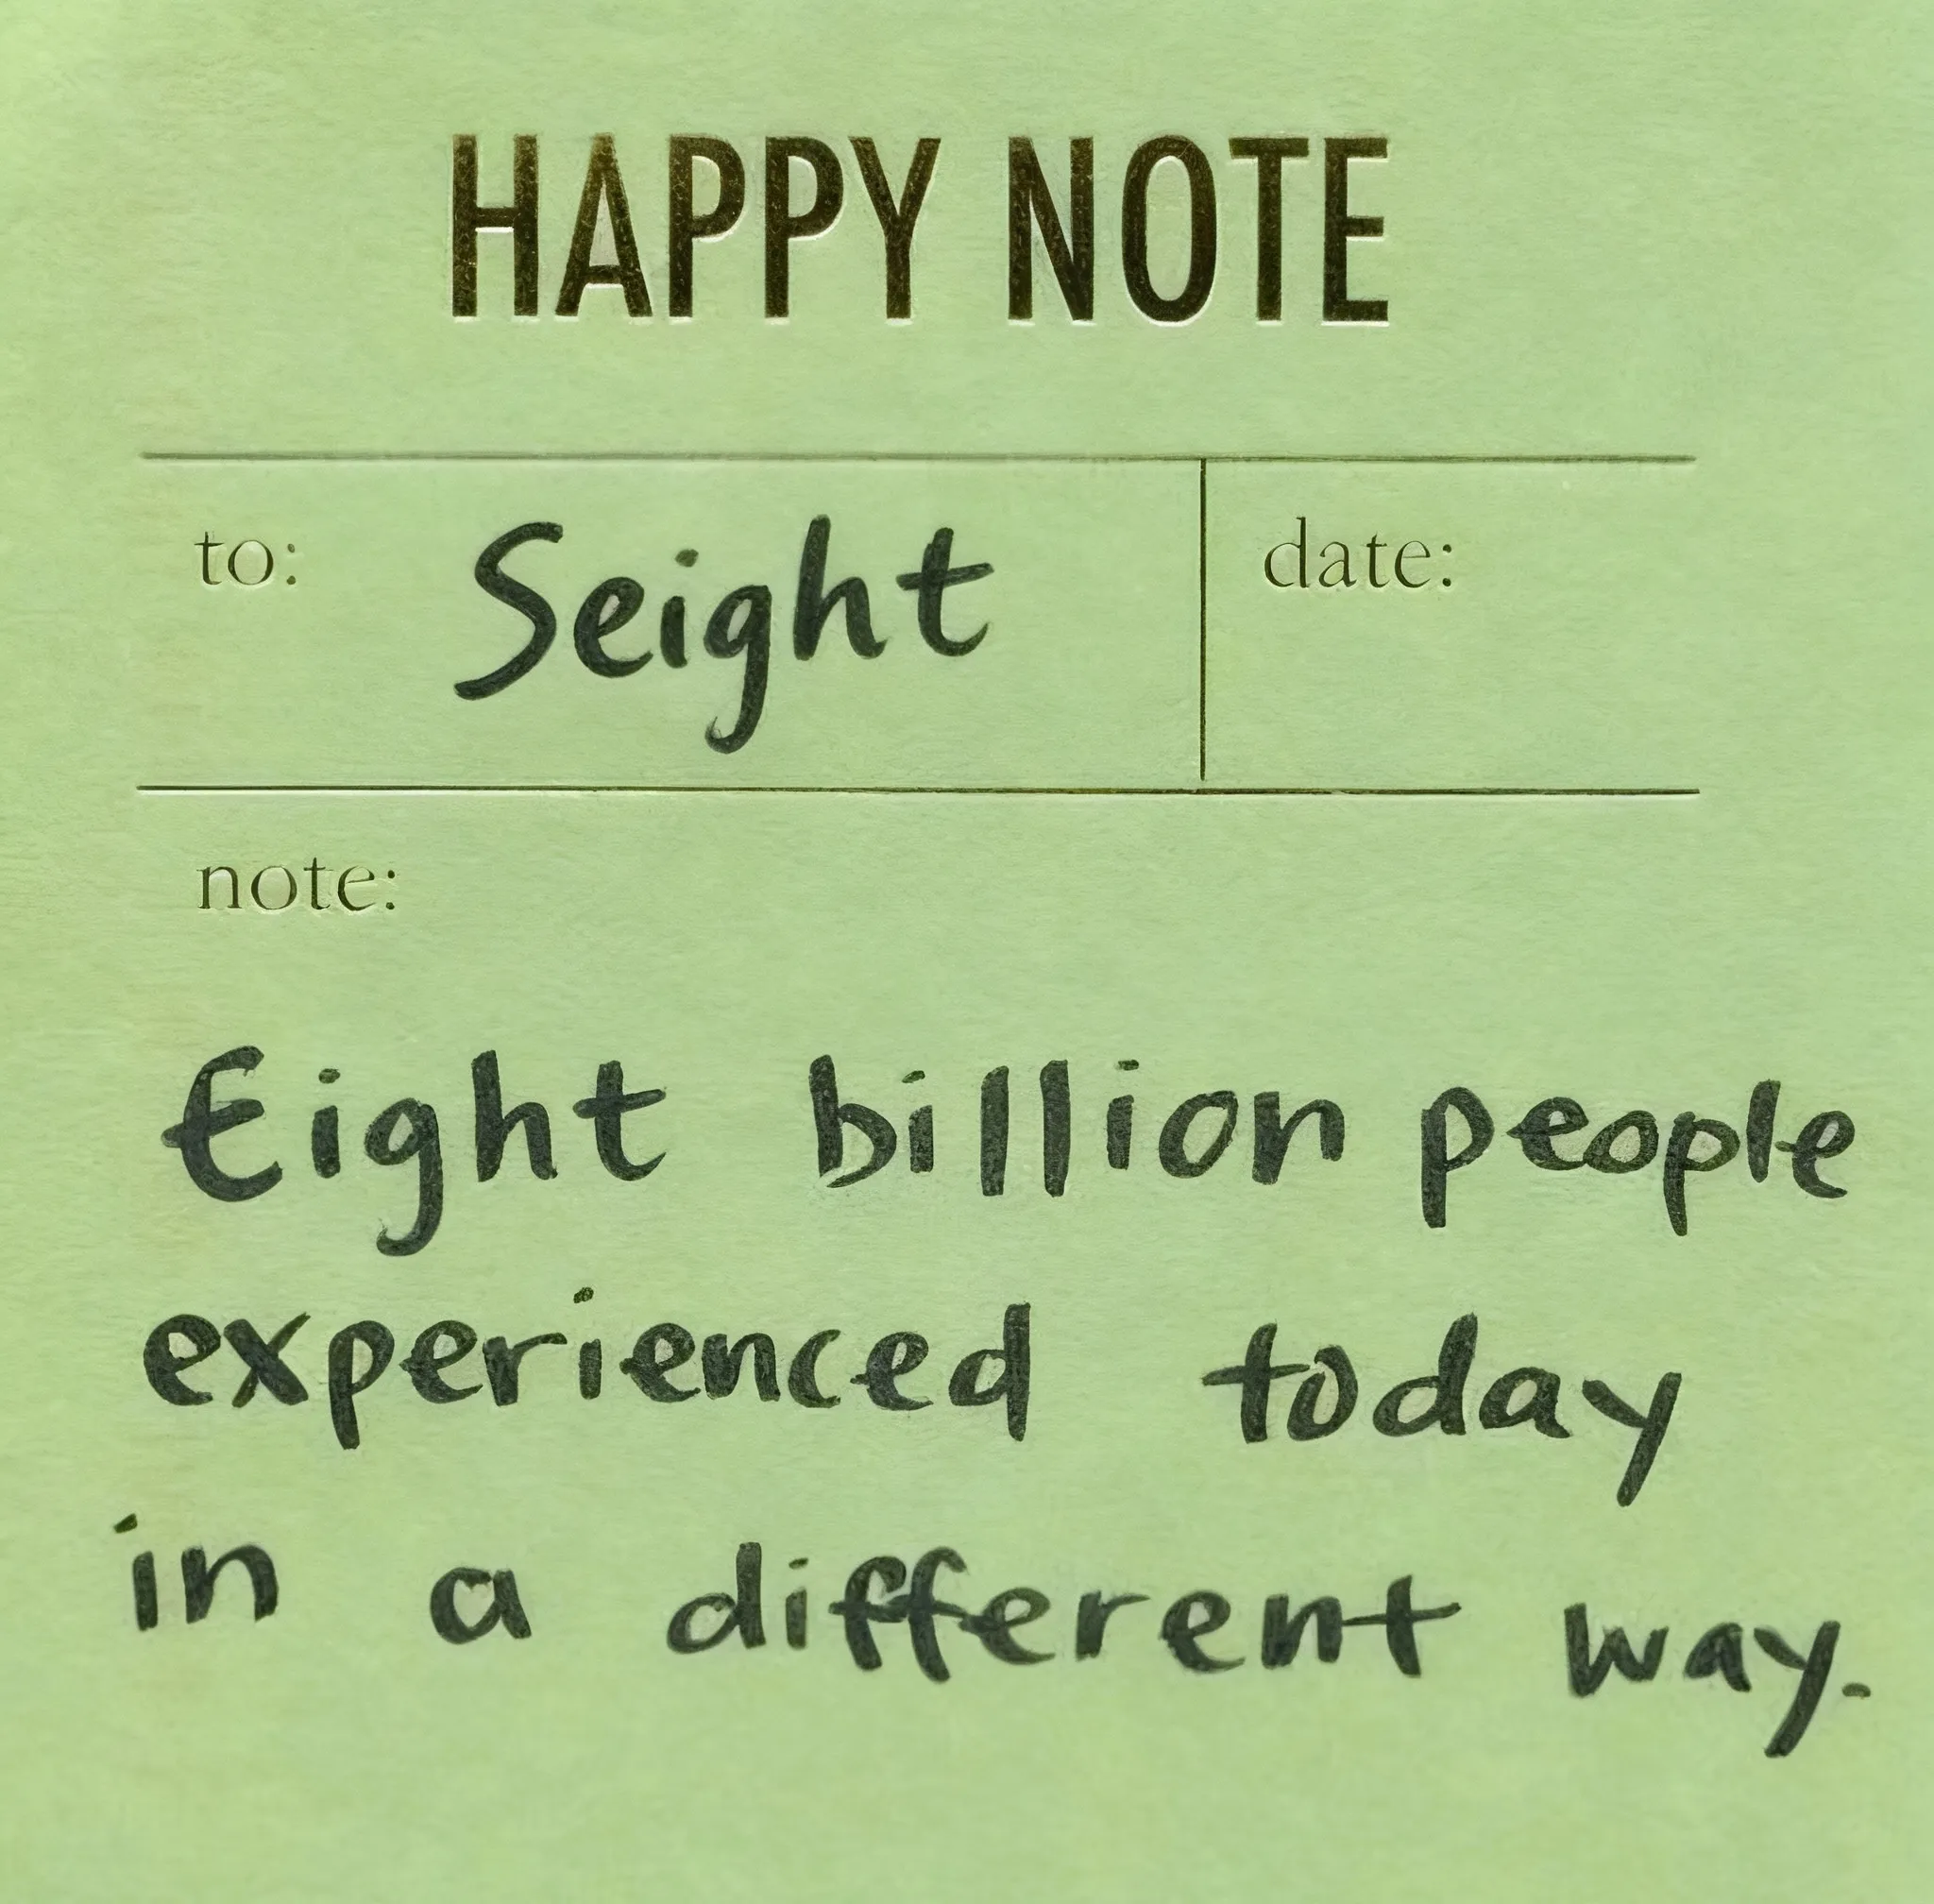 HAPPY NOTE
to: Seight date:
note:
Eight billion people
experienced today
in a different way.